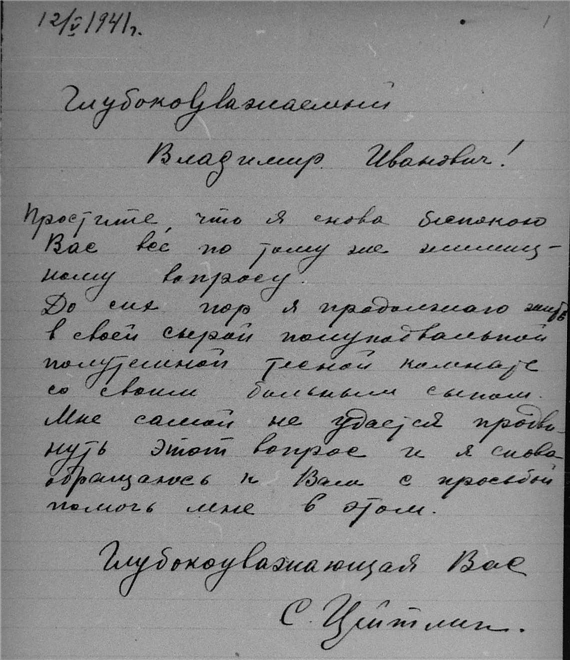 12/V 1941г.
1
Глубокоуважаемый
Владимир Иванович!
Простите, что я снова беспокою
Вас всё по тому же жилищ-
ному вопросу.
До сих пор я продолжаю жить
в своей сырой полуподвальной
полутемной тесной комнате
со своим больным сыном.
Мне самой не удается продви-
нуть этот вопрос и я снова
обращаюсь к Вам с просьбой
помочь мне в этом.
Глубокоуважающая Вас
С. Цейтлин.